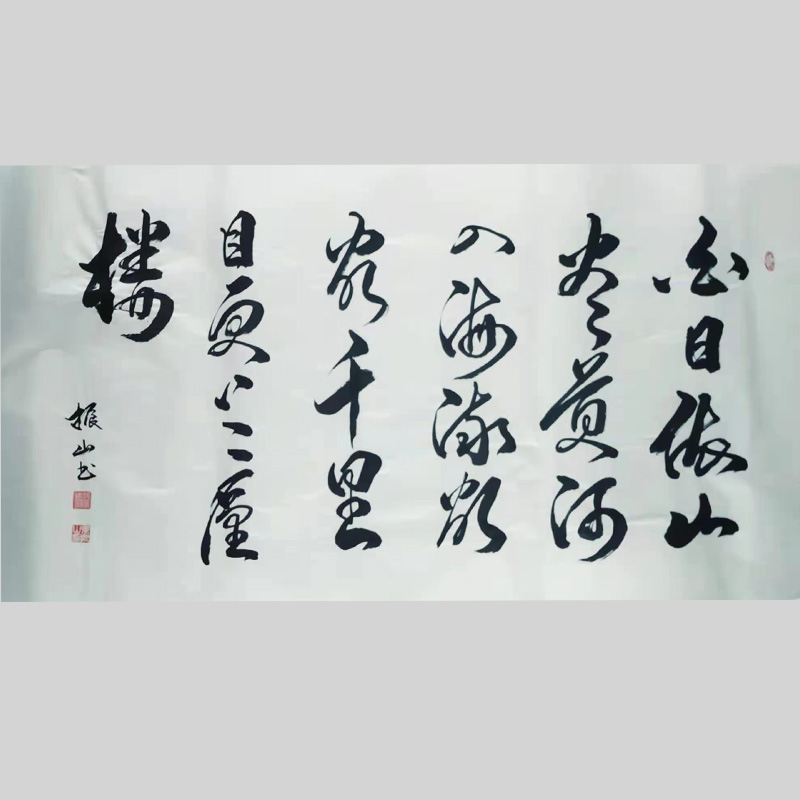 白日依山
尽黄河
入海流欲
窮千里
目更上一層
楼
振山书